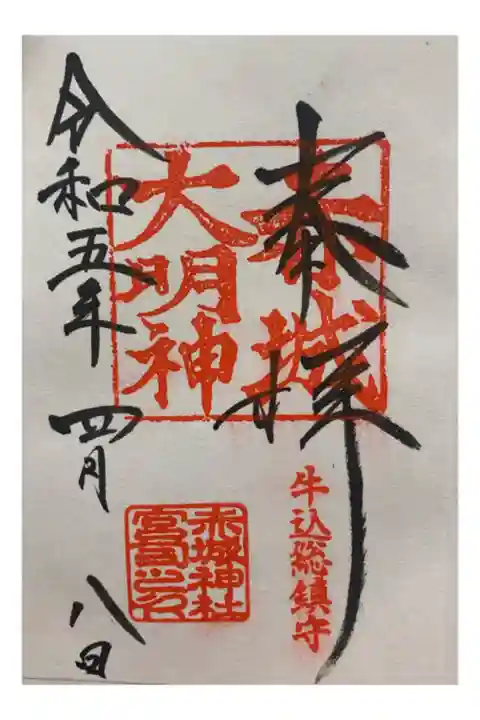 奉拝
赤城
大明神
牛込総鎮守
赤城神社
宮司之印
令和五年 四月 八日